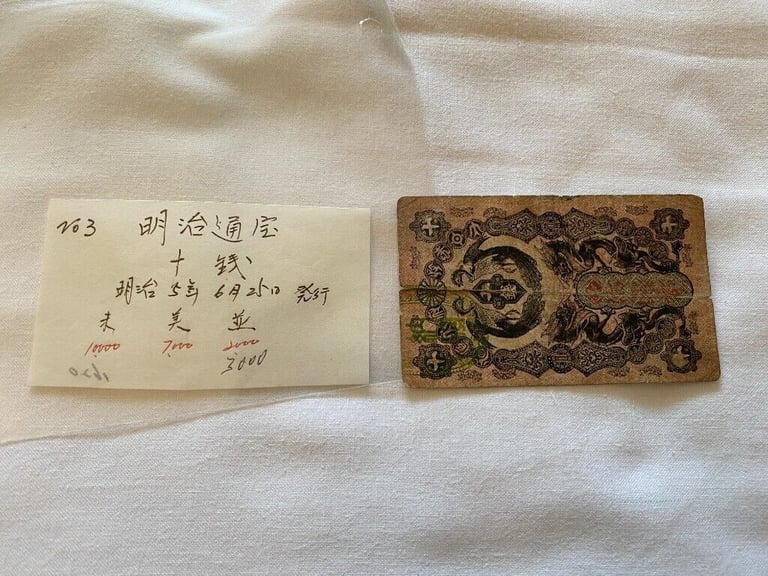 No3 明治通宝
十銭
明治5年6月25日発行
未 美 並
10000 7,000 2000
3,000
1620
十 十
十 十